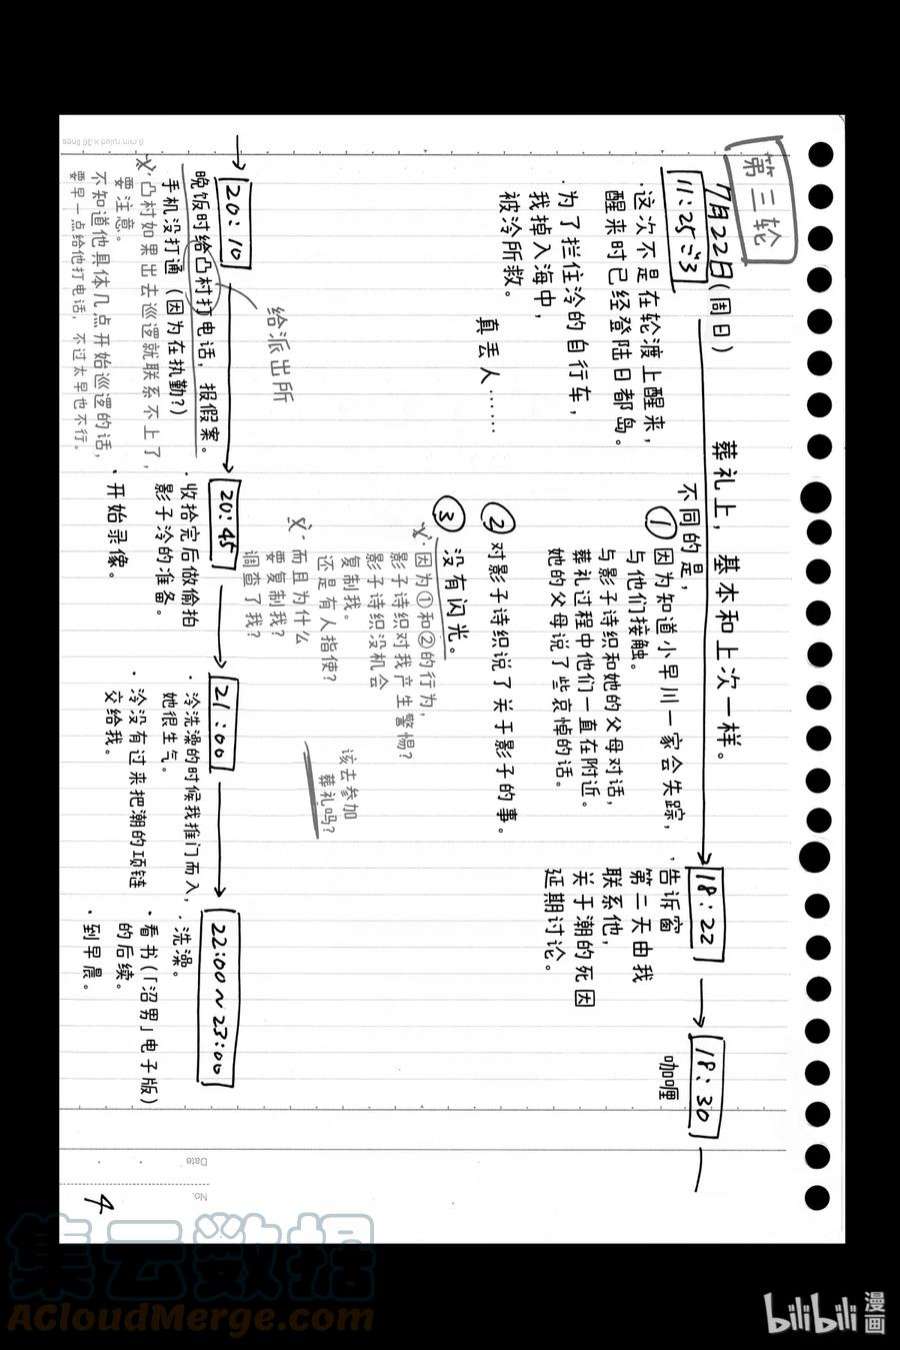 第三轮
7月22日（周日）
11:25:3
·这次不是在轮渡上醒来，
醒来时已经登陆日都岛。
·为了拦住泠的自行车，
我掉入海中，
被泠所救。
真丢人……
葬礼上，基本和上次一样。
不同的是，
① 因为知道小早川一家会失踪，
与他们接触。
与影子诗织和她的父母对话，
葬礼过程中他们一直在附近。
她的父母说了些哀悼的话。
② 对影子诗织说了关于影子的事。
③ 没有闪光。
·因为①和②的行为，
影子诗织对我产生警惕？
影子诗织没机会
复制我。
还是有人指使？
·而且为什么
要复制我？
调查了我？
该去参加
葬礼吗？
18:22
·告诉窗
第二天由我
联系他，
关于潮的死因
延期讨论。
18:30
咖喱
20:10
晚饭时给凸村打电话，报假案。
手机没打通（因为在执勤？）
给派出所
·凸村如果出去巡逻就联系不上了，
要注意。
不知道他具体几点开始巡逻的话，
要早一点给他打电话，不过太早也不行。
20:45
·收拾完后做偷拍
影子泠的准备。
·开始录像。
21:00
·泠洗澡的时候我推门而入，
她很生气。
·泠没有过来把潮的项链
交给我。
22:00~23:00
·洗澡。
·看书（「沼男」电子版）
的后续。
·到早晨。
Date
No.
4
集云数据
ACloudMerge.com
bilibili
漫画